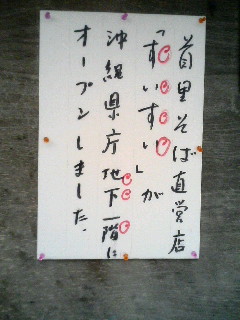 首里そば直営店
「すいすい」が
沖縄県庁地下一階に
オープンしました.